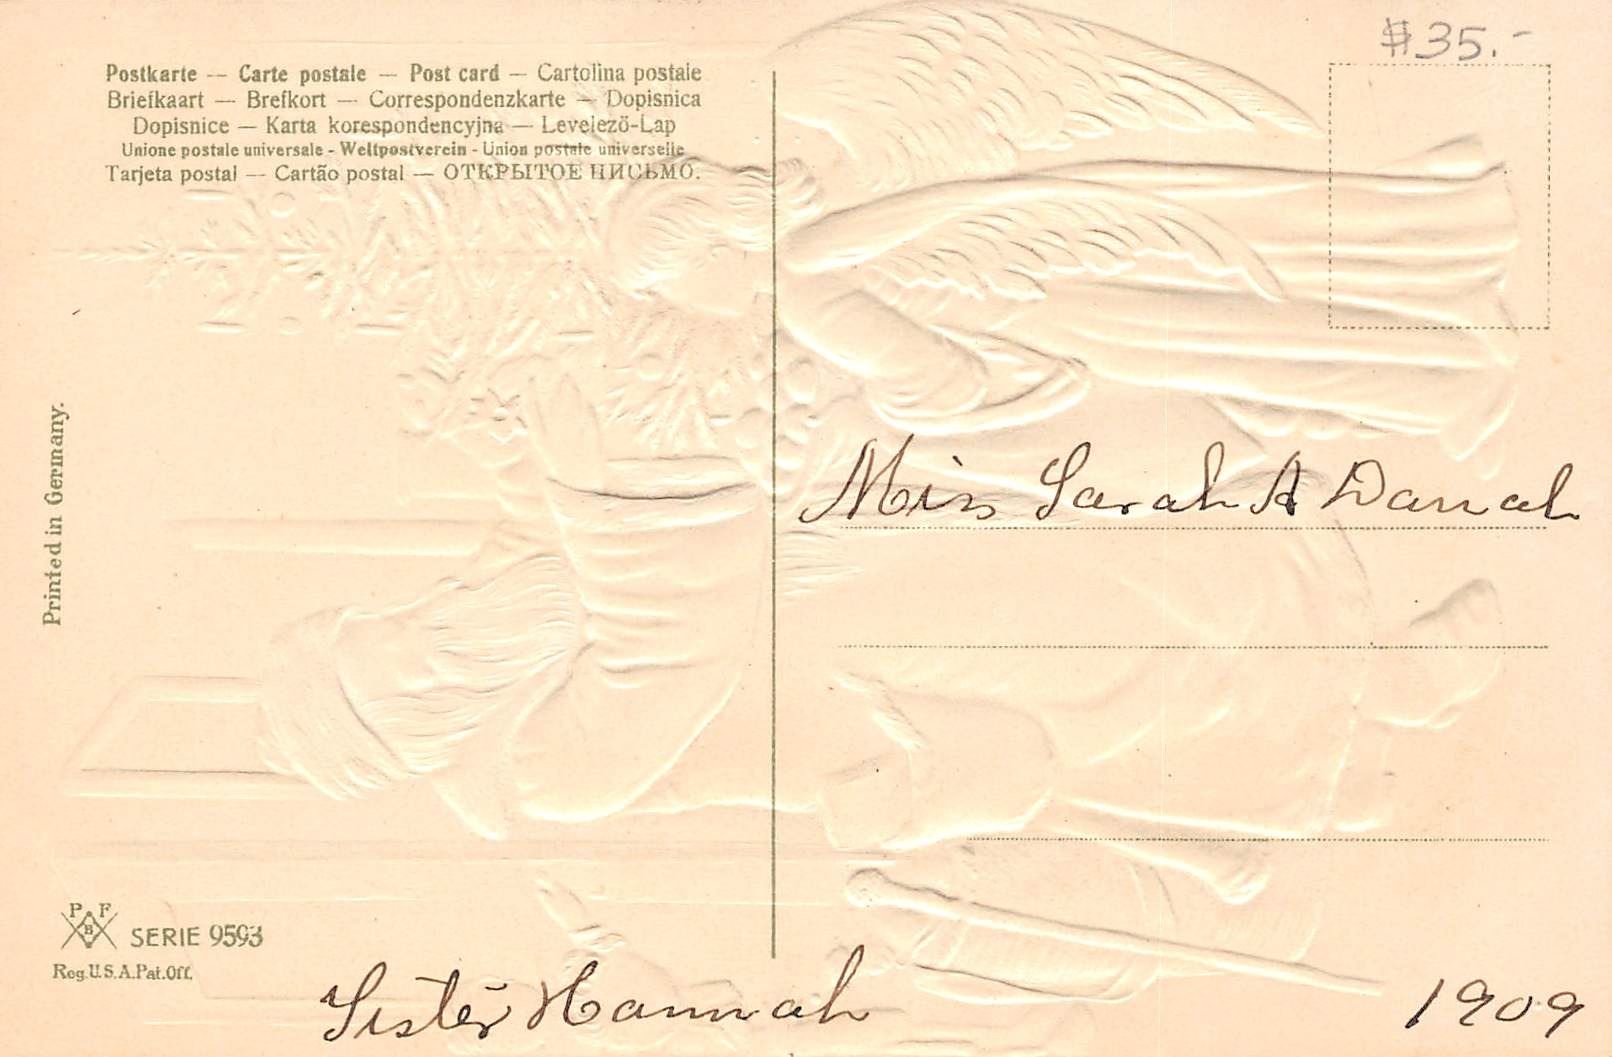 #35.-
Postkarte -- Carte postale — Post card — Cartolina postale
Briefkaart — Brefkort — Correspondenzkarte — Dopisnica
Dopisnice — Karta korespondencyjna — Levelezö-Lap
Unione postale universale - Weltpostverein - Union postale universelle
Tarjeta postal -- Cartão postal — ОТКРЫТОЕ ПИСЬМО.
Printed in Germany.
Miss Sarah A Darrah
P F
B
SERIE 9593
Reg.U.S.A.Pat.Off.
Sister Hannah
1909